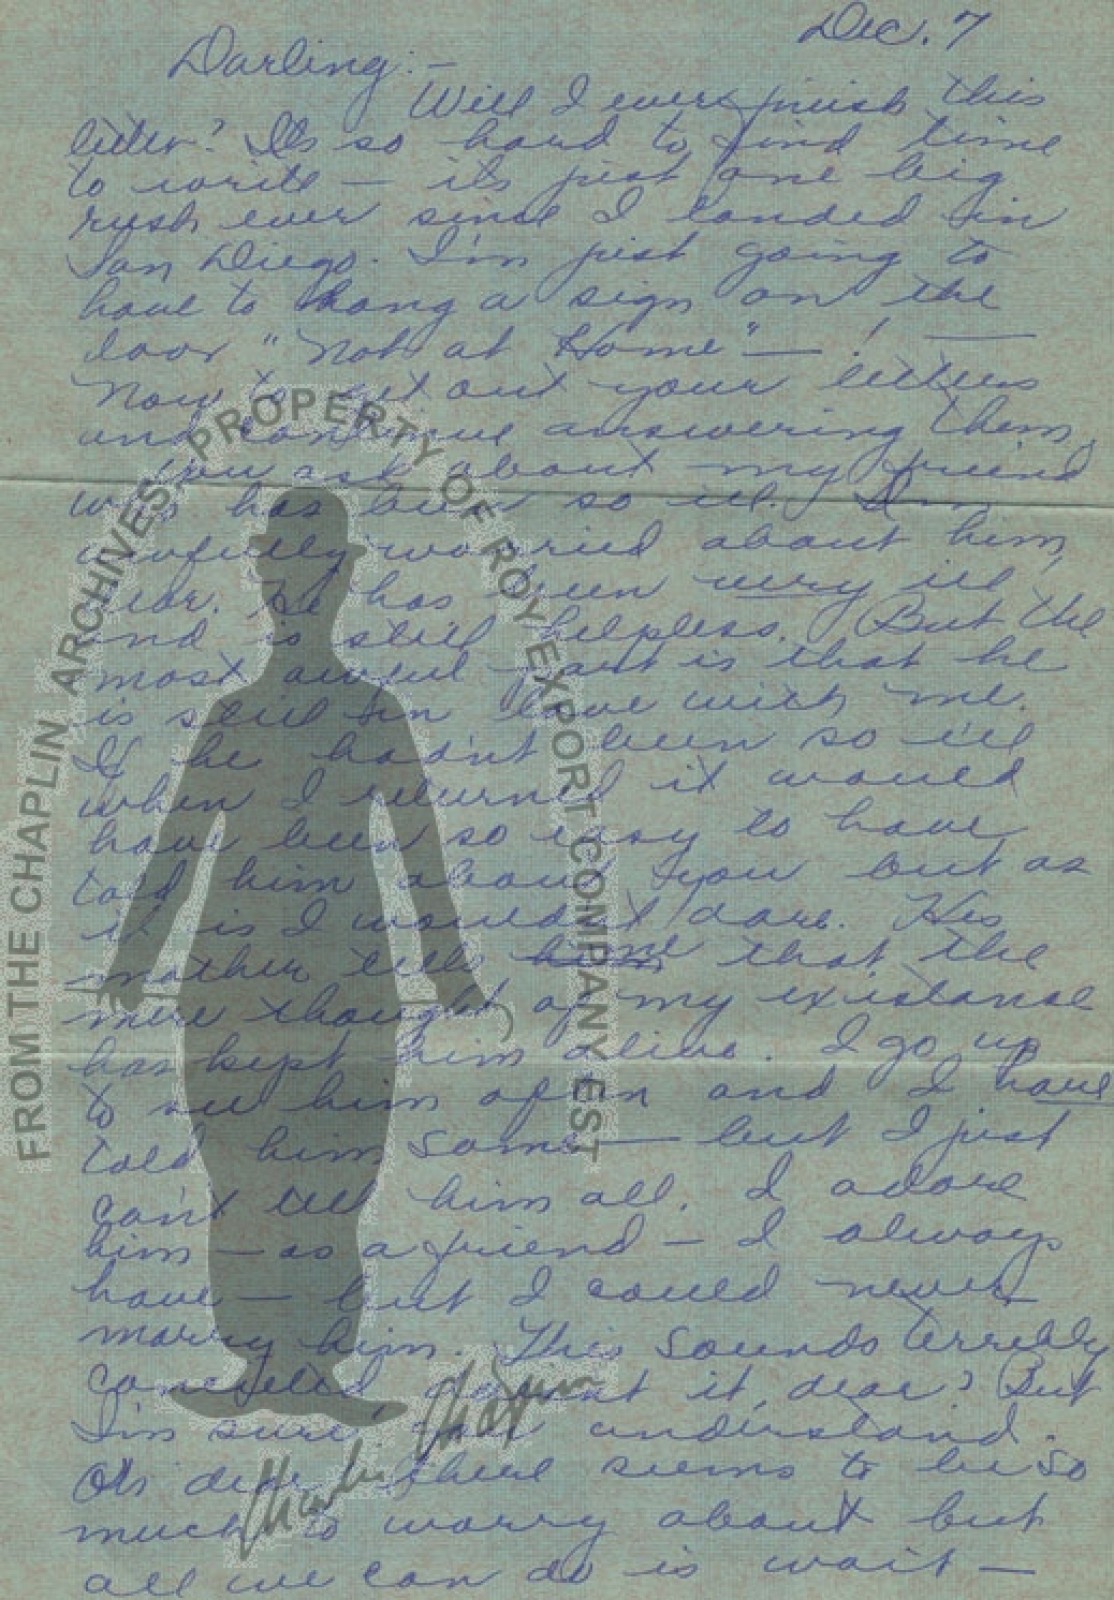 Dec. 7
Darling:-
Will I ever finish this
letter? Its so hard to find time
to write — its just one big
rush ever since I landed in
San Diego. I'm just going to
have to hang a sign on the
door "Not at Home" — ! —
Now to get out your letters
and continue answering them.
You ask about my friend
who has been so ill. I'm
awfully worried about him,
dear. He has been very ill
and is still helpless. But the
most awful part is that he
is still in love with me.
If he hadn't been so ill
when I returned it would
have been so easy to have
told him about you but as
it is I wouldn't dare. His
mother tells me that the
mere thought of my existance
has kept him alive. I go up
to see him often and I have
told him some — but I just
can't tell him all. I adore
him — as a friend — I always
have — but I could never
marry him. This sounds terribly
conceited doesn't it, dear? But
I'm sure you understand.
Oh dear there seems to be so
much to worry about but
all we can do is wait —
FROM THE CHAPLIN ARCHIVES, PROPERTY OF ROY EXPORT COMPANY EST
Charlie Chaplin